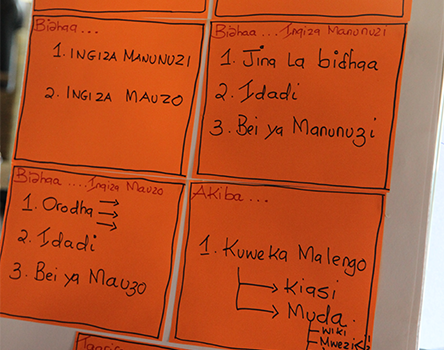 Bidhaa...
1. INGIZA MANUNUZI
2. INGIZA MAUZO
Bidhaa... Ingiza Manunuzi
1. Jina La bidhaa
2. Idadi
3. Bei ya Manunuzi
Bidhaa .... Ingiza Mauzo
1. Orodha
2. Idadi
3. Bei ya Mauzo
AKiba...
1. Kuweka Malengo
Kiasi
Muda
Wiki